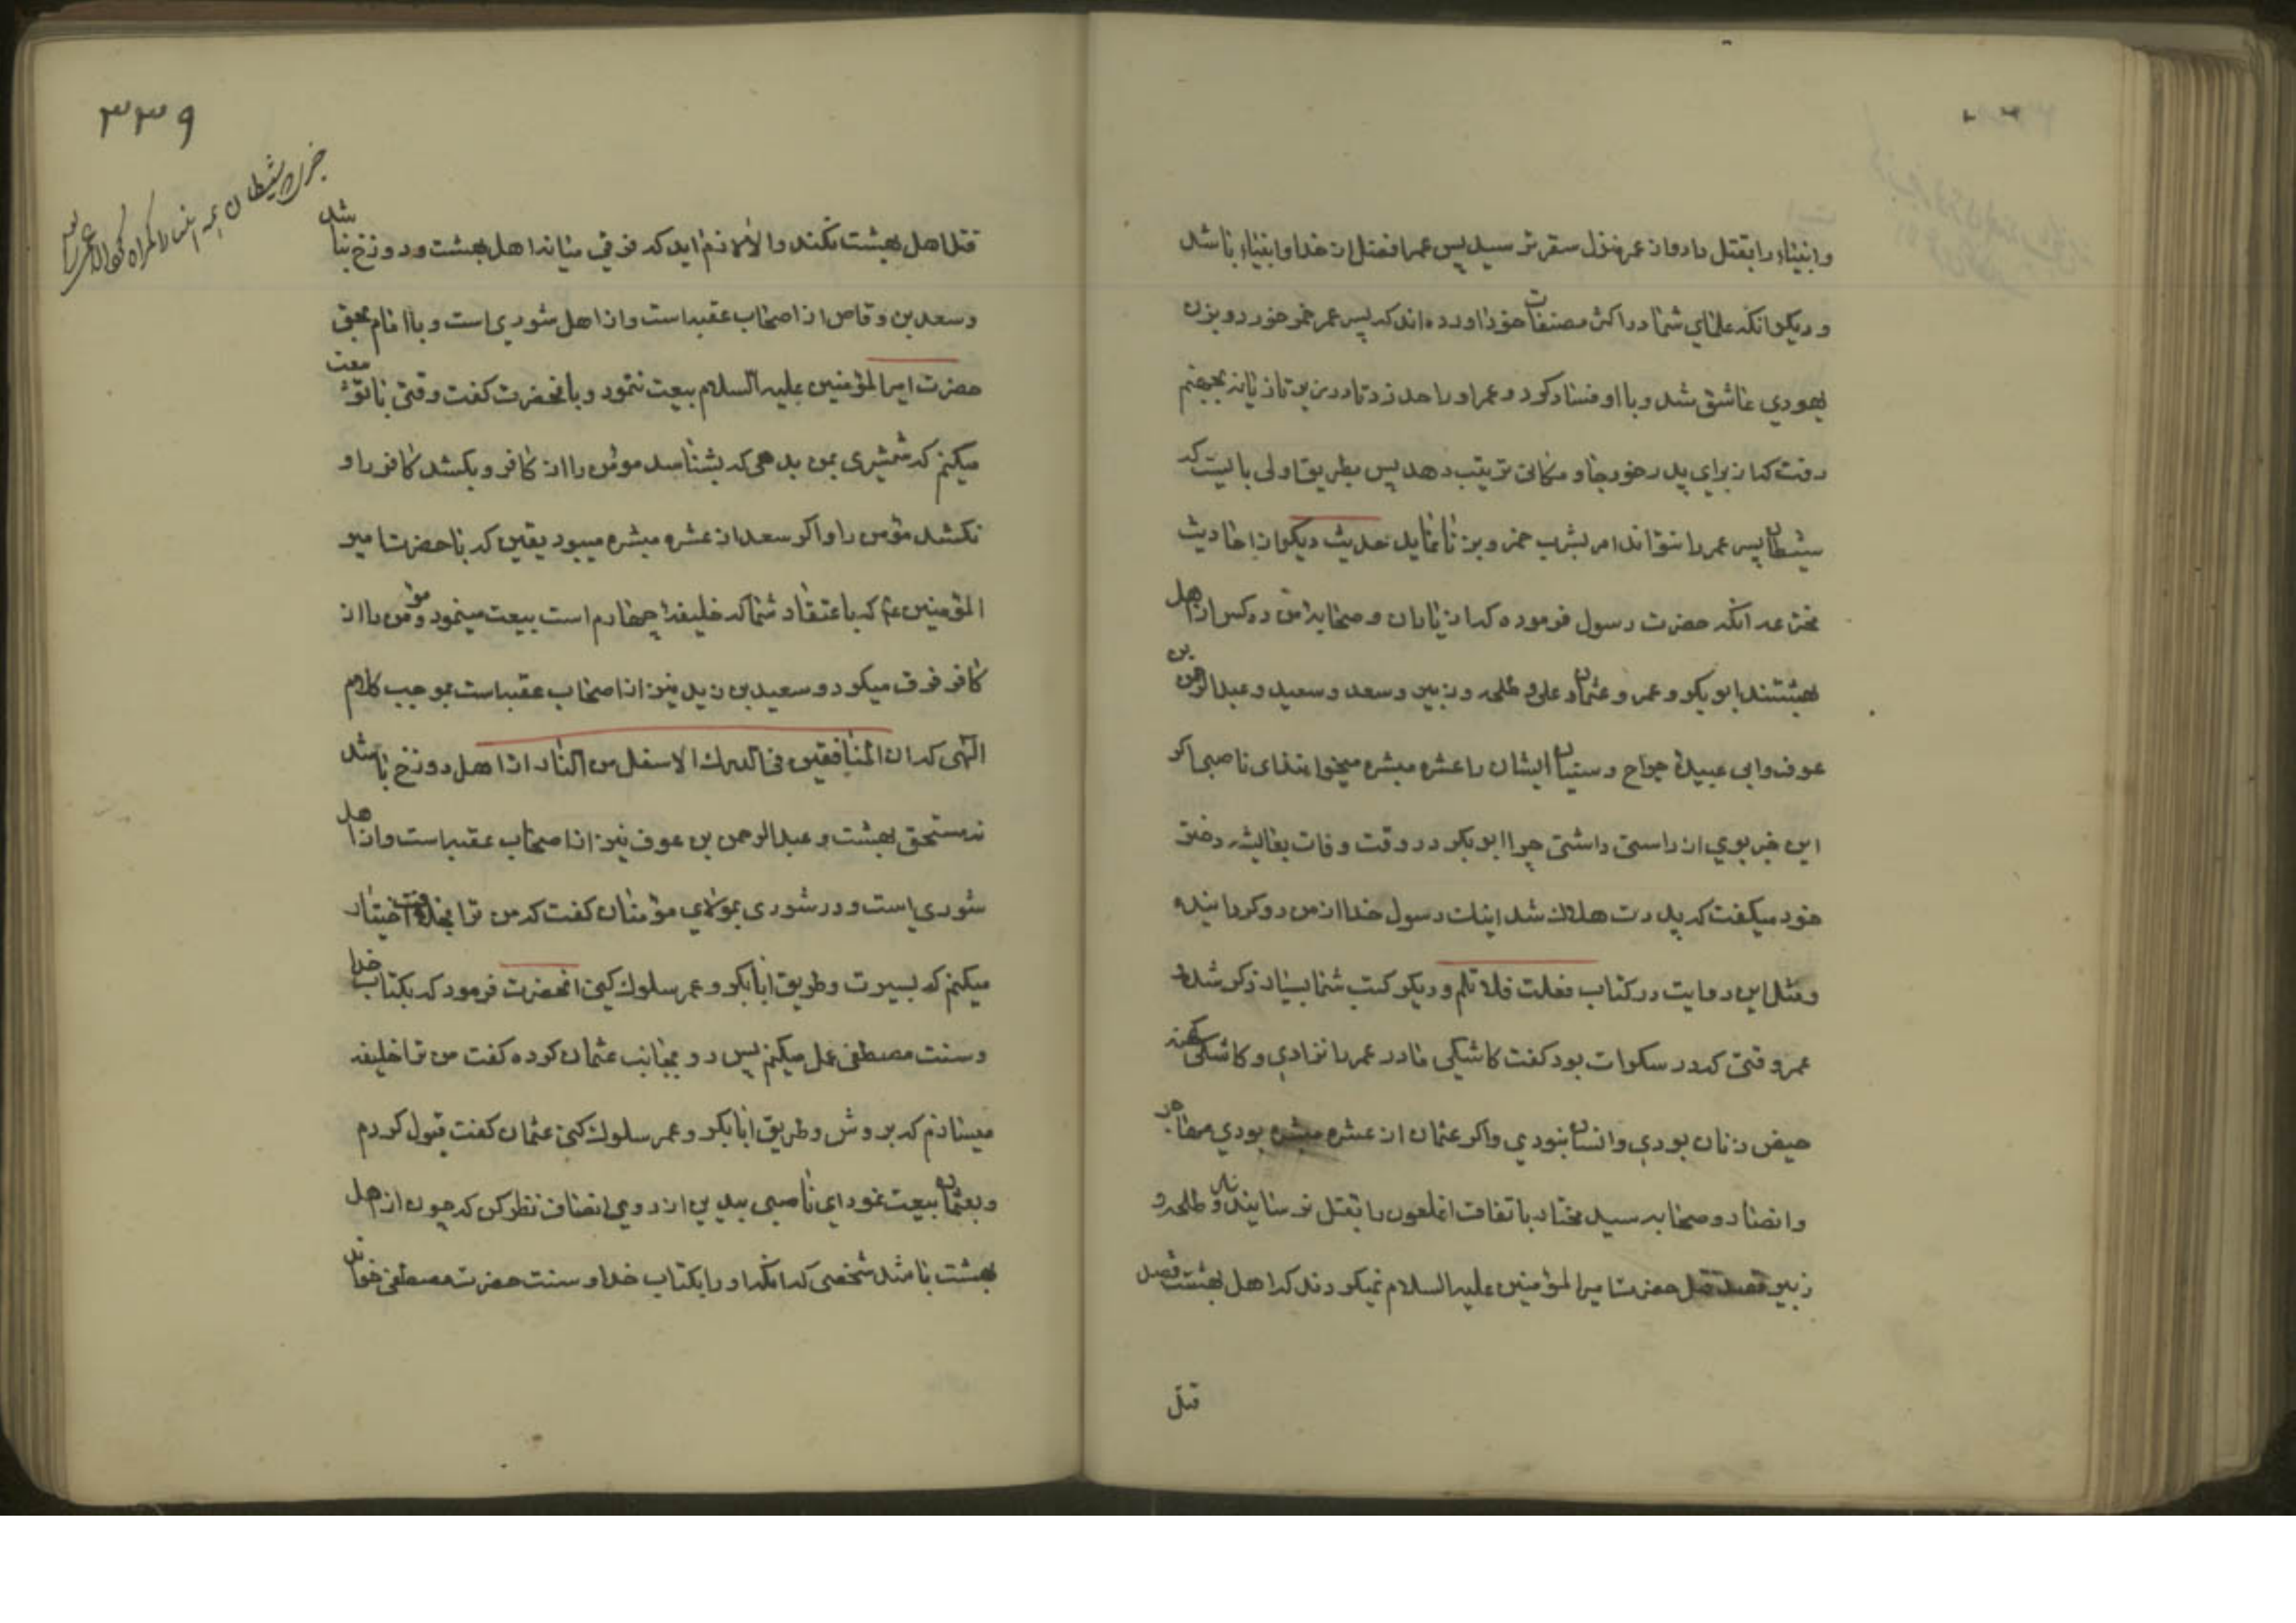 وانبیاء را بقتل داد واز عمر منزل سقرش رسید پس عمر افضل از خدا وانبیاء باشد
و دیکر انکه علمای شما در اکثر مصنفات خود اورده اند که پسر عمر خمر خورد و بزن
یهودی عاشق شد و با او فساد کرد و عمر او را حد زد تا در زیر تازیانه بجهنم
رفت که از برای پدر خود جا و مکانی ترتیب دهد پس بطریق اولی بایست که
شیطان پسر عمر را نتواند امر بشرب خمر و زنا نماید حدیث دیکر از احادیث
مخترعه انکه حضرت رسول فرموده که از یاران و صحابه من ده کس از اهل
بهشتند ابوبکر و عمر و عثمان و علی و طلحه و زبیر و سعد و سعید و عبدالرحمن بن
عوف و ابی عبیدهٔ جراح و سنیان ایشان را عشره مبشره میخوانند ای ناصبی اکر
این خبر بوی از راستی داشتی چرا ابوبکر در وقت وفات بعایشه دختر
خود میکفت که پدرت هلاک شد اینک رسول خدا از من رو کردانیده
و مثل این روایت در کتاب فعلت فلا تلم و دیکر کتب شما بسیار ذکر شده و
عمر وقتی که در سکرات بود کفت کاشیکی مادر عمر را نزادی و کاشکی کهنه
حیض زنان بودی و انسان نبودی و اکر عثمان از عشره مبشره بودی مهاجر
و انصار و صحابه سید مختار باتفاق انملعون را بقتل نرسانیدند و طلحه و
زبیر قصد قتل حضرت امیرالمؤمنین علیه السلام نمیکردند که اهل بهشت قصد
قتل
٣٣٩
قتل اهل بهشت نکند والا لازم اید که فرقی میانه اهل بهشت و دوزخ نباشد
و سعد بن وقاص از اصحاب عقبه است واز اهل شوری است و با امام بحق
حضرت امیرالمؤمنین علیه السلام بیعت ننمود و بانحضرت کفت وقتی با تو بیعت
میکنم که شمشیری بمن بدهی که بشناسد مومن را از کافر و بکشد کافر را و
نکشد مؤمن را و اکر سعد از عشره مبشره میبود یقین که با حضرت امیر
المؤمنین ع م که باعتقاد شما که خلیفهٔ چهارم است بیعت مینمود و مؤمن را از
کافر فرق میکرد و سعید بن زید نیز از اصحاب عقبه است بموجب کلام
الهی که ان المنافقین فی الدرک الاسفل من النار از اهل دوزخ باشد
نه مستحق بهشت و عبدالرحمن بن عوف نیز از اصحاب عقبه است و از اهل
شوری است و در شوری بمولای مؤمنان کفت که من ترا بخلافت اختیار
میکنم که بسیرت و طریق ابابکر و عمر سلوک کنی انحضرت فرمود که بکتاب خدا
و سنت مصطفی عمل میکنم پس رو بجانب عثمان کرده کفت من ترا خلیفه
میسازم که بروش و طریق ابابکر و عمر سلوک کنی عثمان کفت قبول کردم
و بعثمان بیعت نمود ای ناصبی بیدین از روی انصاف نظر کن که چون از اهل
بهشت باشد شخصی که انکه او را بکتاب خدا و سنت حضرت مصطفی خواند